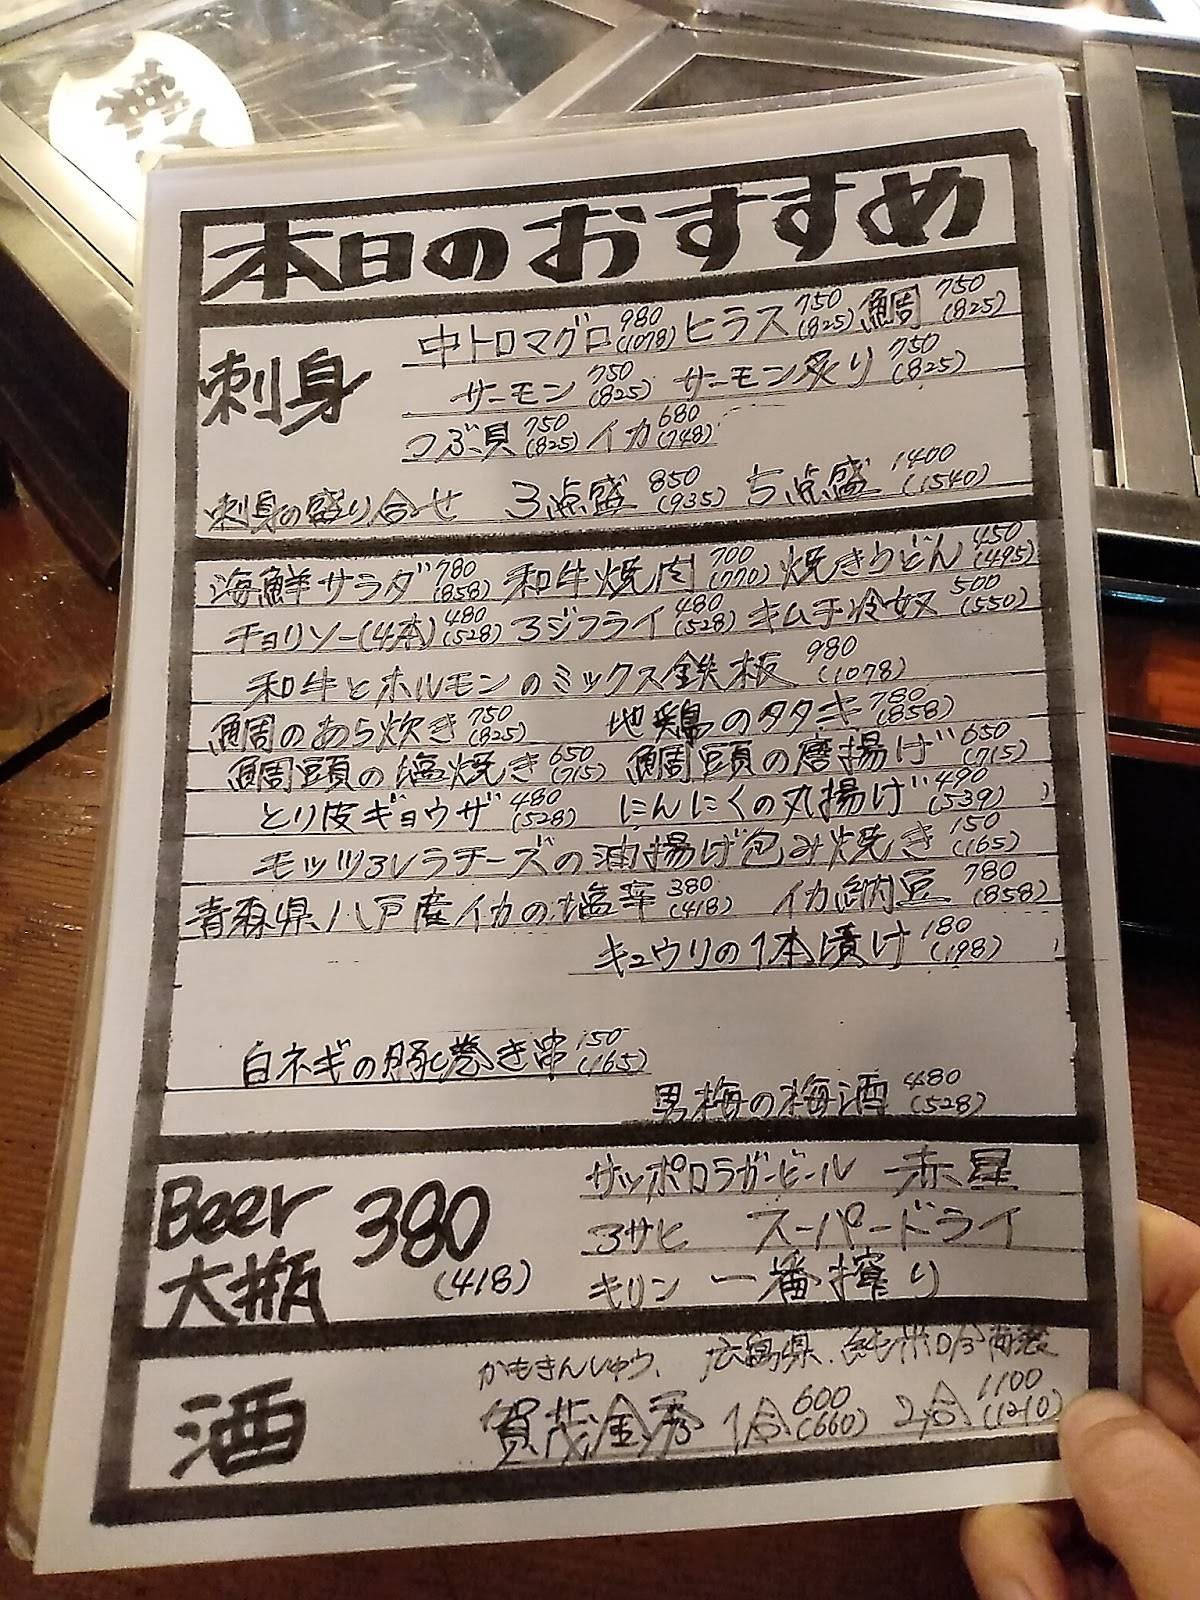 本日のおすすめ
刺身
中トロマグロ 980 (1078) ヒラス 750 (825) 鯛 750 (825)
サーモン 750 (825) サーモン炙り 750 (825)
つぶ貝 750 (825) イカ 680 (748)
刺身の盛り合せ 3点盛 850 (935) 5点盛 1400 (1540)
海鮮サラダ 780 (858) 和牛焼肉 700 (770) 焼きうどん 450 (495)
チョリソー(4本) 480 (528) アジフライ 480 (528) キムチ冷奴 500 (550)
和牛とホルモンのミックス鉄板 980 (1078)
鯛のあら炊き 750 (825) 地鶏のタタキ 780 (858)
鯛頭の塩焼き 650 (715) 鯛頭の唐揚げ 650 (715)
とり皮ギョウザ 480 (528) にんにくの丸揚げ 490 (539)
モッツァレラチーズの油揚げ包み焼き 150 (165)
青森県八戸産イカの塩辛 380 (418) イカ納豆 780 (858)
キュウリの1本漬け 180 (198)
白ネギの豚巻き串 150 (165)
男梅の梅酒 480 (528)
Beer 大瓶 380 (418)
サッポロラガービール 赤星
アサヒ スーパードライ
キリン 一番搾り
酒
かもきんしゅう、広島県.純米
賀茂金秀 1合 600 (660) 2合 1100 (1210)